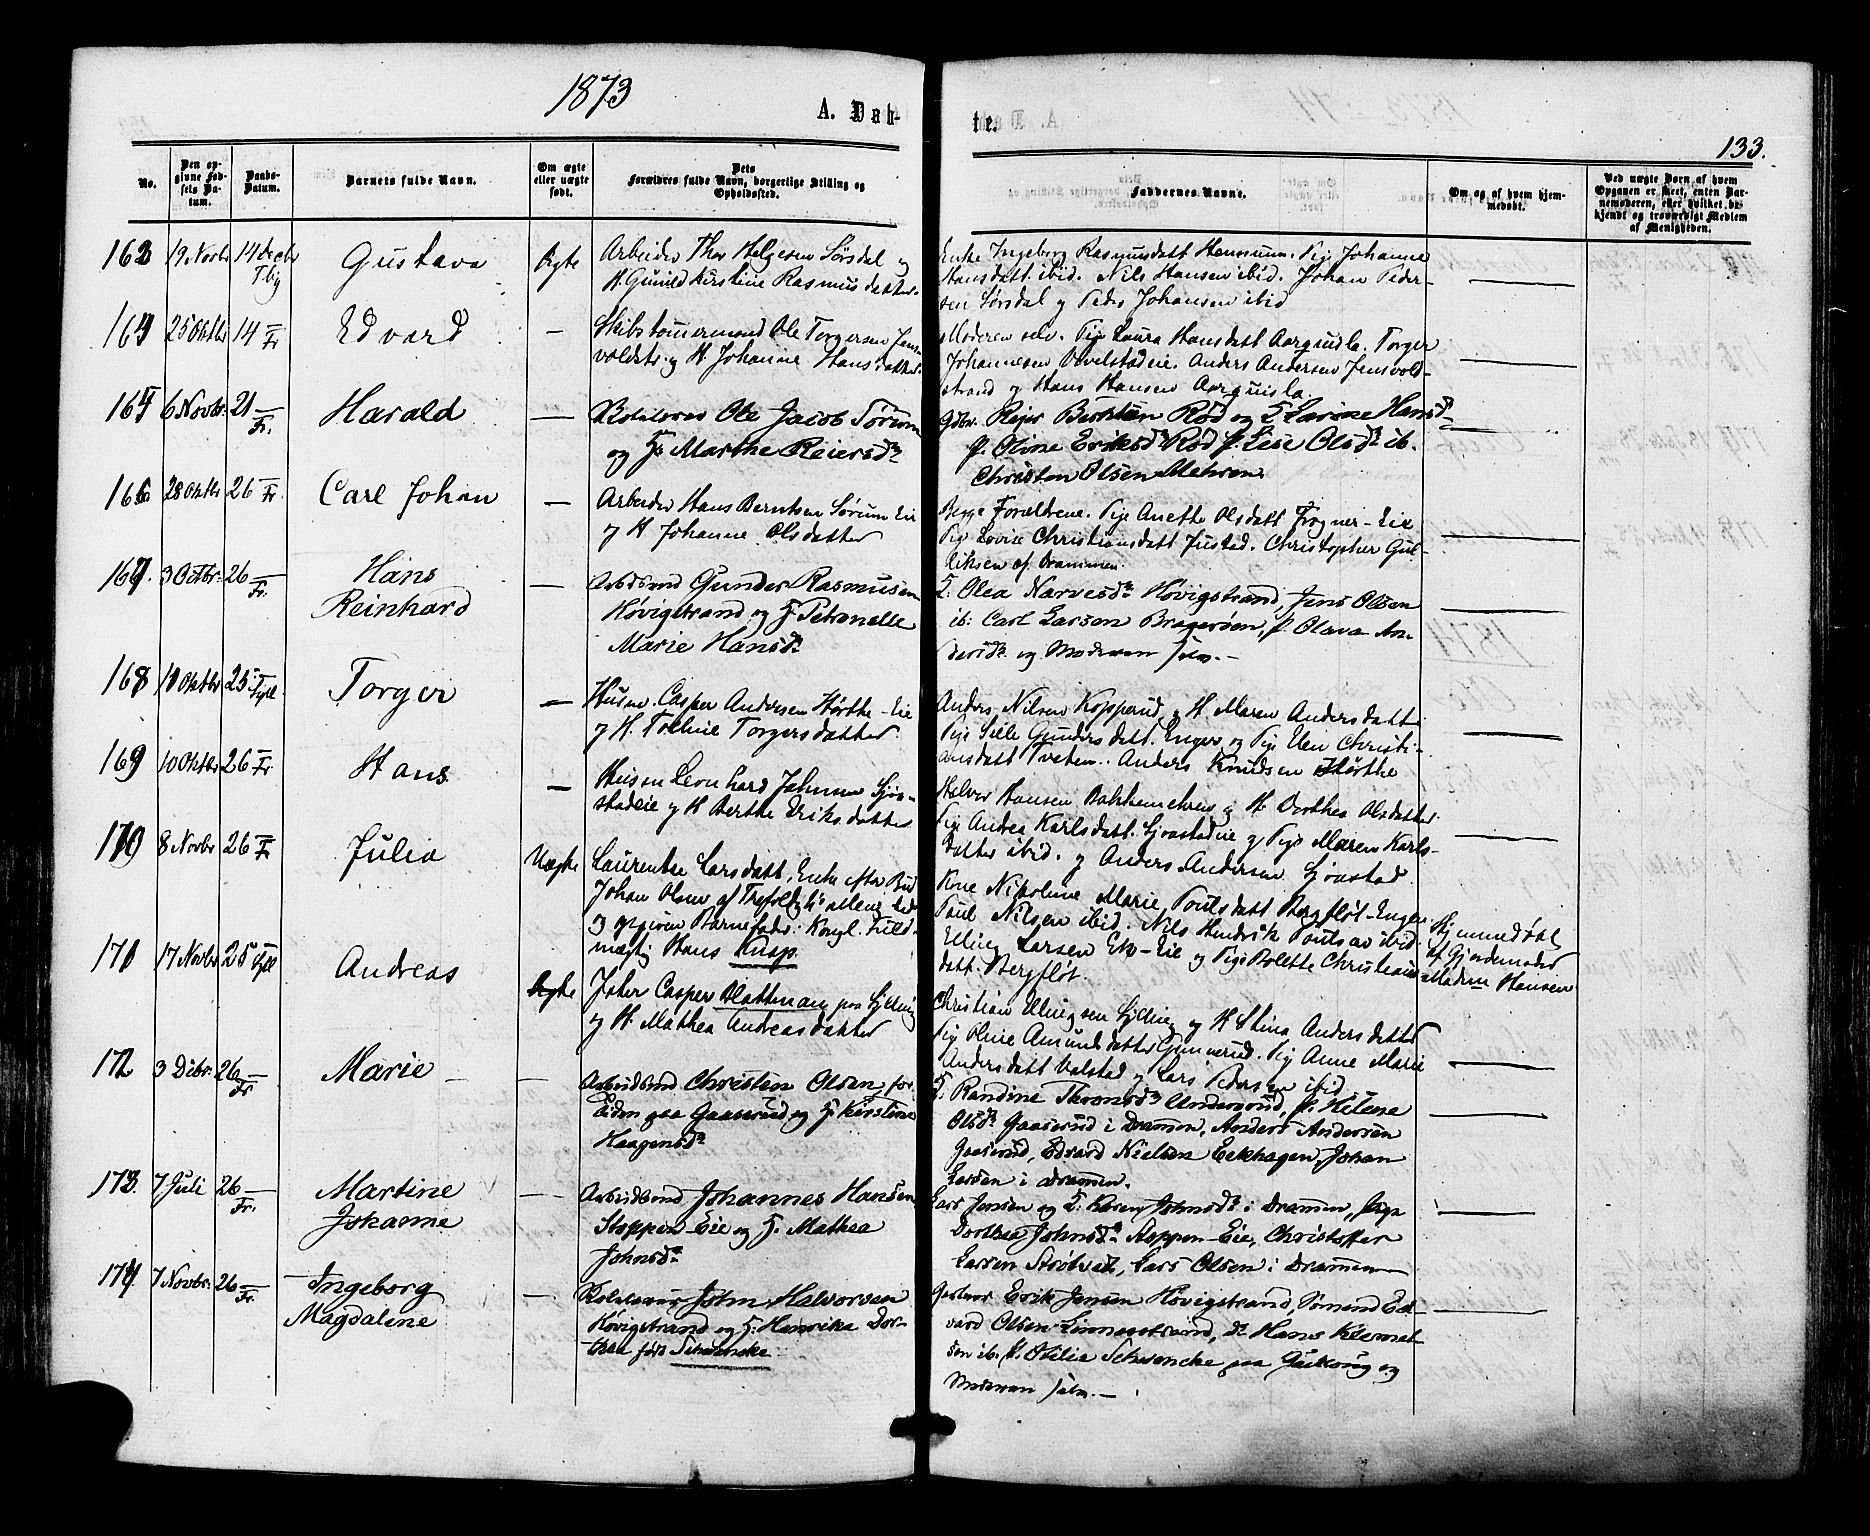 1873
A. Døb-
te.
133.
No.
Den op-
givne Fød-
sels Da-
tum.
Daabs-
Datum.
Barnets fulde Navn.
Om ægte
eller uægte
født.
Dets
Forældres fulde Navn, borgerlige Stilling og
Opholdssted.
Faddernes Navne.
Om og af hvem hjem-
medøbt.
Ved uægte Børn af hvem
Opgaven er skeet, enten Bar-
nemoderen, eller hvilket be-
kjendt og troværdigt Medlem
af Menigheden.
163 19 Novbr 14 Decbr Gustava Ægte
Arbeider Thor Helgesen Sørsdal og
H. Gunild Kirstine Rasmusdatter
Enke Ingeborg Rasmusdatt Hansrum. Pige Johanne
Hansdatt ibid. Nils Hansen ibid. Johan Peder-
sen Sørsdal og Peder Johansen ibid
164 25 Oktbr 14 Fr Edvard —
Skibstømmermand Ole Torgersen Jens-
voldstr. og H. Johanne Hansdatter
Moderen selv. Pige Laura Hansdatt Aargunsla. Torger
Johannesen Anders Andersen Jensvold-
strand og Hans Hansen Aargunsla
165 6 Novbr. 21 Fr. Harald —
Ole Jacob Sørum
og H. Marthe Reiersdr
Gdbr. Reier Berntsen Rød og H Larine Hansdr
p. Oline Eriksdr Rød p. Lise Olsdr ib.
Christen Olsen Mehren
166 28 Oktbr 26 Fr. Carl Johan —
Arbeider Hans Berntsen Sørum Eie
og H Johanne Olsdatter
Begge Forældrene. Pige Anette Olsdatt Frogner-Eie
Pige Lovise Christiansdatt Justad. Christopher Gul-
liksen af Drammen.
167. 3 Octbr. 26 Fr. Hans
Reinhard —
Arbdsmd Gunder Rasmusen
Høvigstrand og H Petronelle
Marie Hansdr
H. Olea Narvesdr Høvigstrand, Jens Olsen
ib: Carl Larsen Bragerøen, p. Olava An-
dersdr og Moderen selv.—
168 11 Oktbr 25 Fyll. Torger —
Husm. Casper Andersen Hørthe-Eie
og H. Torgersdatter
Anders Nilsen Kopperud og H Maren Andersdatter
Pige Sille Gundersdatt. Enger og Pige Elen Christi-
ansdatt Tveten. Anders Knudsen Hørthe
169 10 Oktbr 26 Fr Hans —
Husm Leonhard Johnsen Sjøa-
stadeie og H Berthe Eriksdatter
Halvor Hansen og H Dorthea Olsdatter
Pige Andrea Karlsdatt. Sjøastadeie og Pige Maren Karls-
datter ibid. og Anders Andersen Sjøastad
170 8 Novbr 26 Fr Julia Uægte
Laurentse Larsdatt, Enke efter
Johan Olsen af
og opgiven Barnefader: Kongl. Fuld-
mægtig Hans Knap.
Kone Nikoline Marie Poulsdatt Bergfløt-Enger
Paul Nilsen ibid. Nils Hendrik Poulsen ibid.
Elling Larsen Ek-Eie og Pige Bolette Christians
datt. Bergfløt.
Hjemmedøbt
af Gjordemoder
Madme Hansen
171 17 Novbr 25 Fyll Andreas Ægte
Casper Hattman paa Sylling
og H. Mathea Andreasdatter
Christian Ellingsen Sylling og H Stina Andersdatter
Pige Oline Amundsdatter Gunnerud. Pig Anne Marie
Andersdatt Valstad og Lars Pedersen ibid
172 3 Decbr. 26 Fr. Marie —
Arbeidsmd Christen Olsen for
tiden paa Gaaserud og H. Kirstine
Haagensdr
H. Randine Thronsdr Undersrud, p. Helene
Olsdr Gaaserud i Dramen, Anders Andersen
Gaaserud, Edvard Nielsen Eekhagen, Johan
Larsen i Dramen.
173. 7 Juli 26 Fr. Martine
Johanne —
Arbeidsmd Johannes Hansen
Stoppen-Eie og H. Mathea
Johnsdr
Lars Jensen og H. Karen Johnsdr i Dramen, pige
Dorthea Johnsdr Stoppen-Eie, Christoffer
Larsen Lars Olsen i Dramen
174 7 Novbr. 26 Fr. Ingeborg
Magdalene —
John Halvorsen
Høvigstrand og H. Henrika Dor-
thea født Schwencke
Erik Jensen Høvigstrand, Sømand Ed-
vard Olsen Linnesstrand, do Hans Klemet-
sen ib. p. Otilia Schwencke paa Gulskoug og
Moderen selv.—